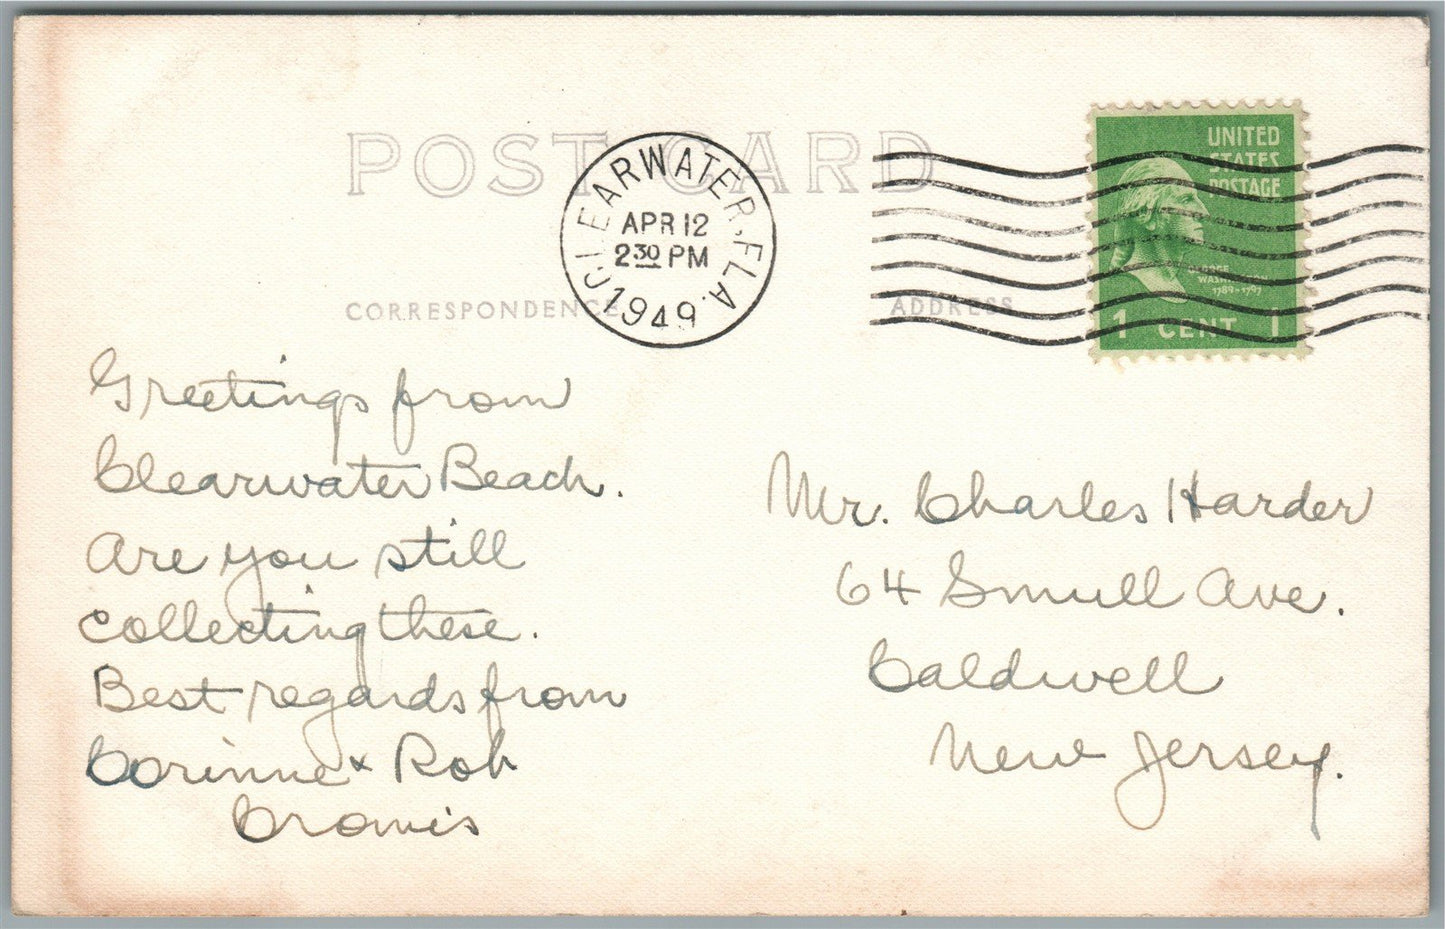 POST CARD
CLEARWATER, FLA.
APR 12
2 30 PM
1949
UNITED
STATES
POSTAGE
GEORGE
WASHINGTON
1789-1797
1 CENT 1
CORRESPONDENCE
ADDRESS
Greetings from
Clearwater Beach.
Are you still
collecting these.
Best regards from
Corinne & Rob
Mr. Charles Harder
64 Smull Ave.
Caldwell
New Jersey.